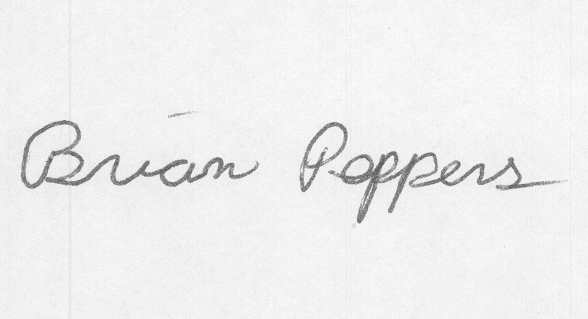 Brian Peppers